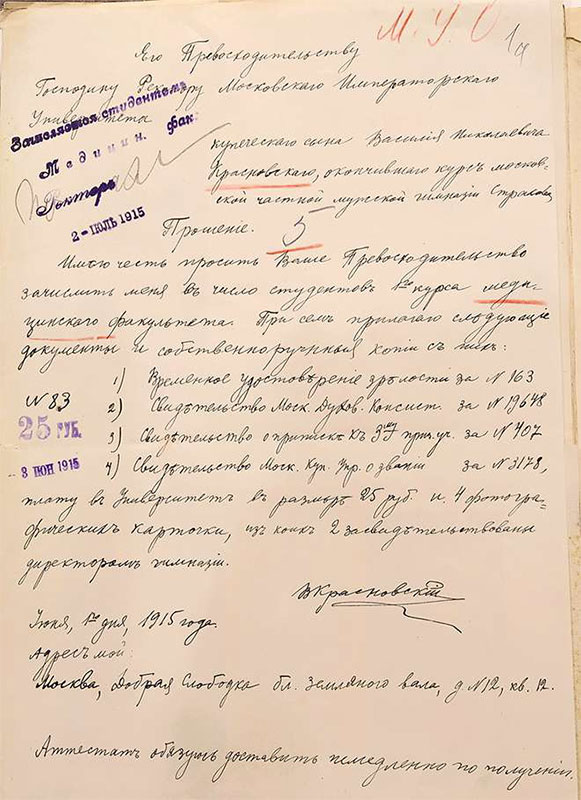 М. У. О
Его Превосходительству
Господину Ректору Московскаго Императорскаго
Университета
Зачисляется студентомъ
Медицин. Фак.
Ректоръ
2 - ИЮЛЬ 1915
купеческаго сына Василія Николаевича
Красновскаго, окончившаго курсъ москов-
ской частной мужской гимназіи Страхова
Прошеніе. 5
Имѣю честь просить Ваше Превосходительство
зачислить меня въ число студентовъ 1го курса меди-
цинскаго факультета. При семъ прилагаю слѣдующіе
документы и собственноручныя копіи съ нихъ:
1) Временное удостовѣреніе зрѣлости за N 163
N 83
2) Свидѣтельство Моск. Духов. Консист. за N 19648
25 РУБ.
3) Свидѣтельство о припискѣ къ 3му приз. уч. за N 707
- 8 ІЮН 1915
4) Свидѣтельство Моск. Куп. Упр. о званіи за N 3178,
плату въ Университетъ въ размѣрѣ 25 руб. и 4 фотогра=
фическихъ карточки, изъ коихъ 2 засвидѣтельствованы
директоромъ гимназіи.
ВКрасновскій
Іюня, 1го дня, 1915 года.
Адресъ мой:
Москва, Добрая Слободка бл. Землянаго вала, д. N 12, кв. 12.
Аттестатъ обязуюсь доставить немедленно по полученіи.